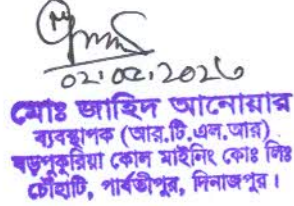 02.04.2026
মোঃ জাহিদ আনোয়ার
ব্যবস্থাপক (আর.টি.এল.আর)
বড়পুকুরিয়া কোল মাইনিং কোঃ লিঃ
চৌহাটি, পার্বতীপুর, দিনাজপুর।